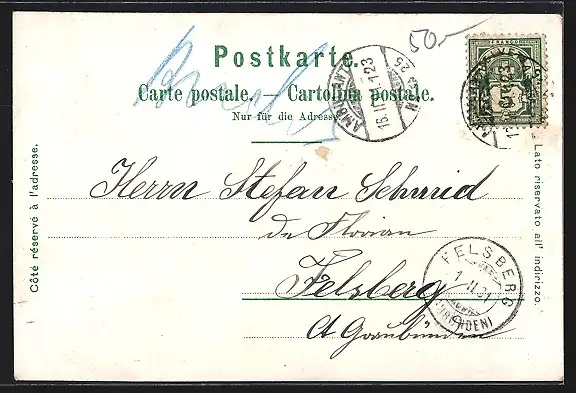 50.-
Postkarte.
Carte postale. — Cartolina postale.
Nur für die Adresse.
AMBULANT
N. 25
FRANCO
Côté réservé à l'adresse.
Lato riservato all' indirizzo.
Herrn Stefan Schmid
de Florian
Felsberg
Ct Graubünden
FELSBERG
1 II 01
(GRAUBÜNDEN)